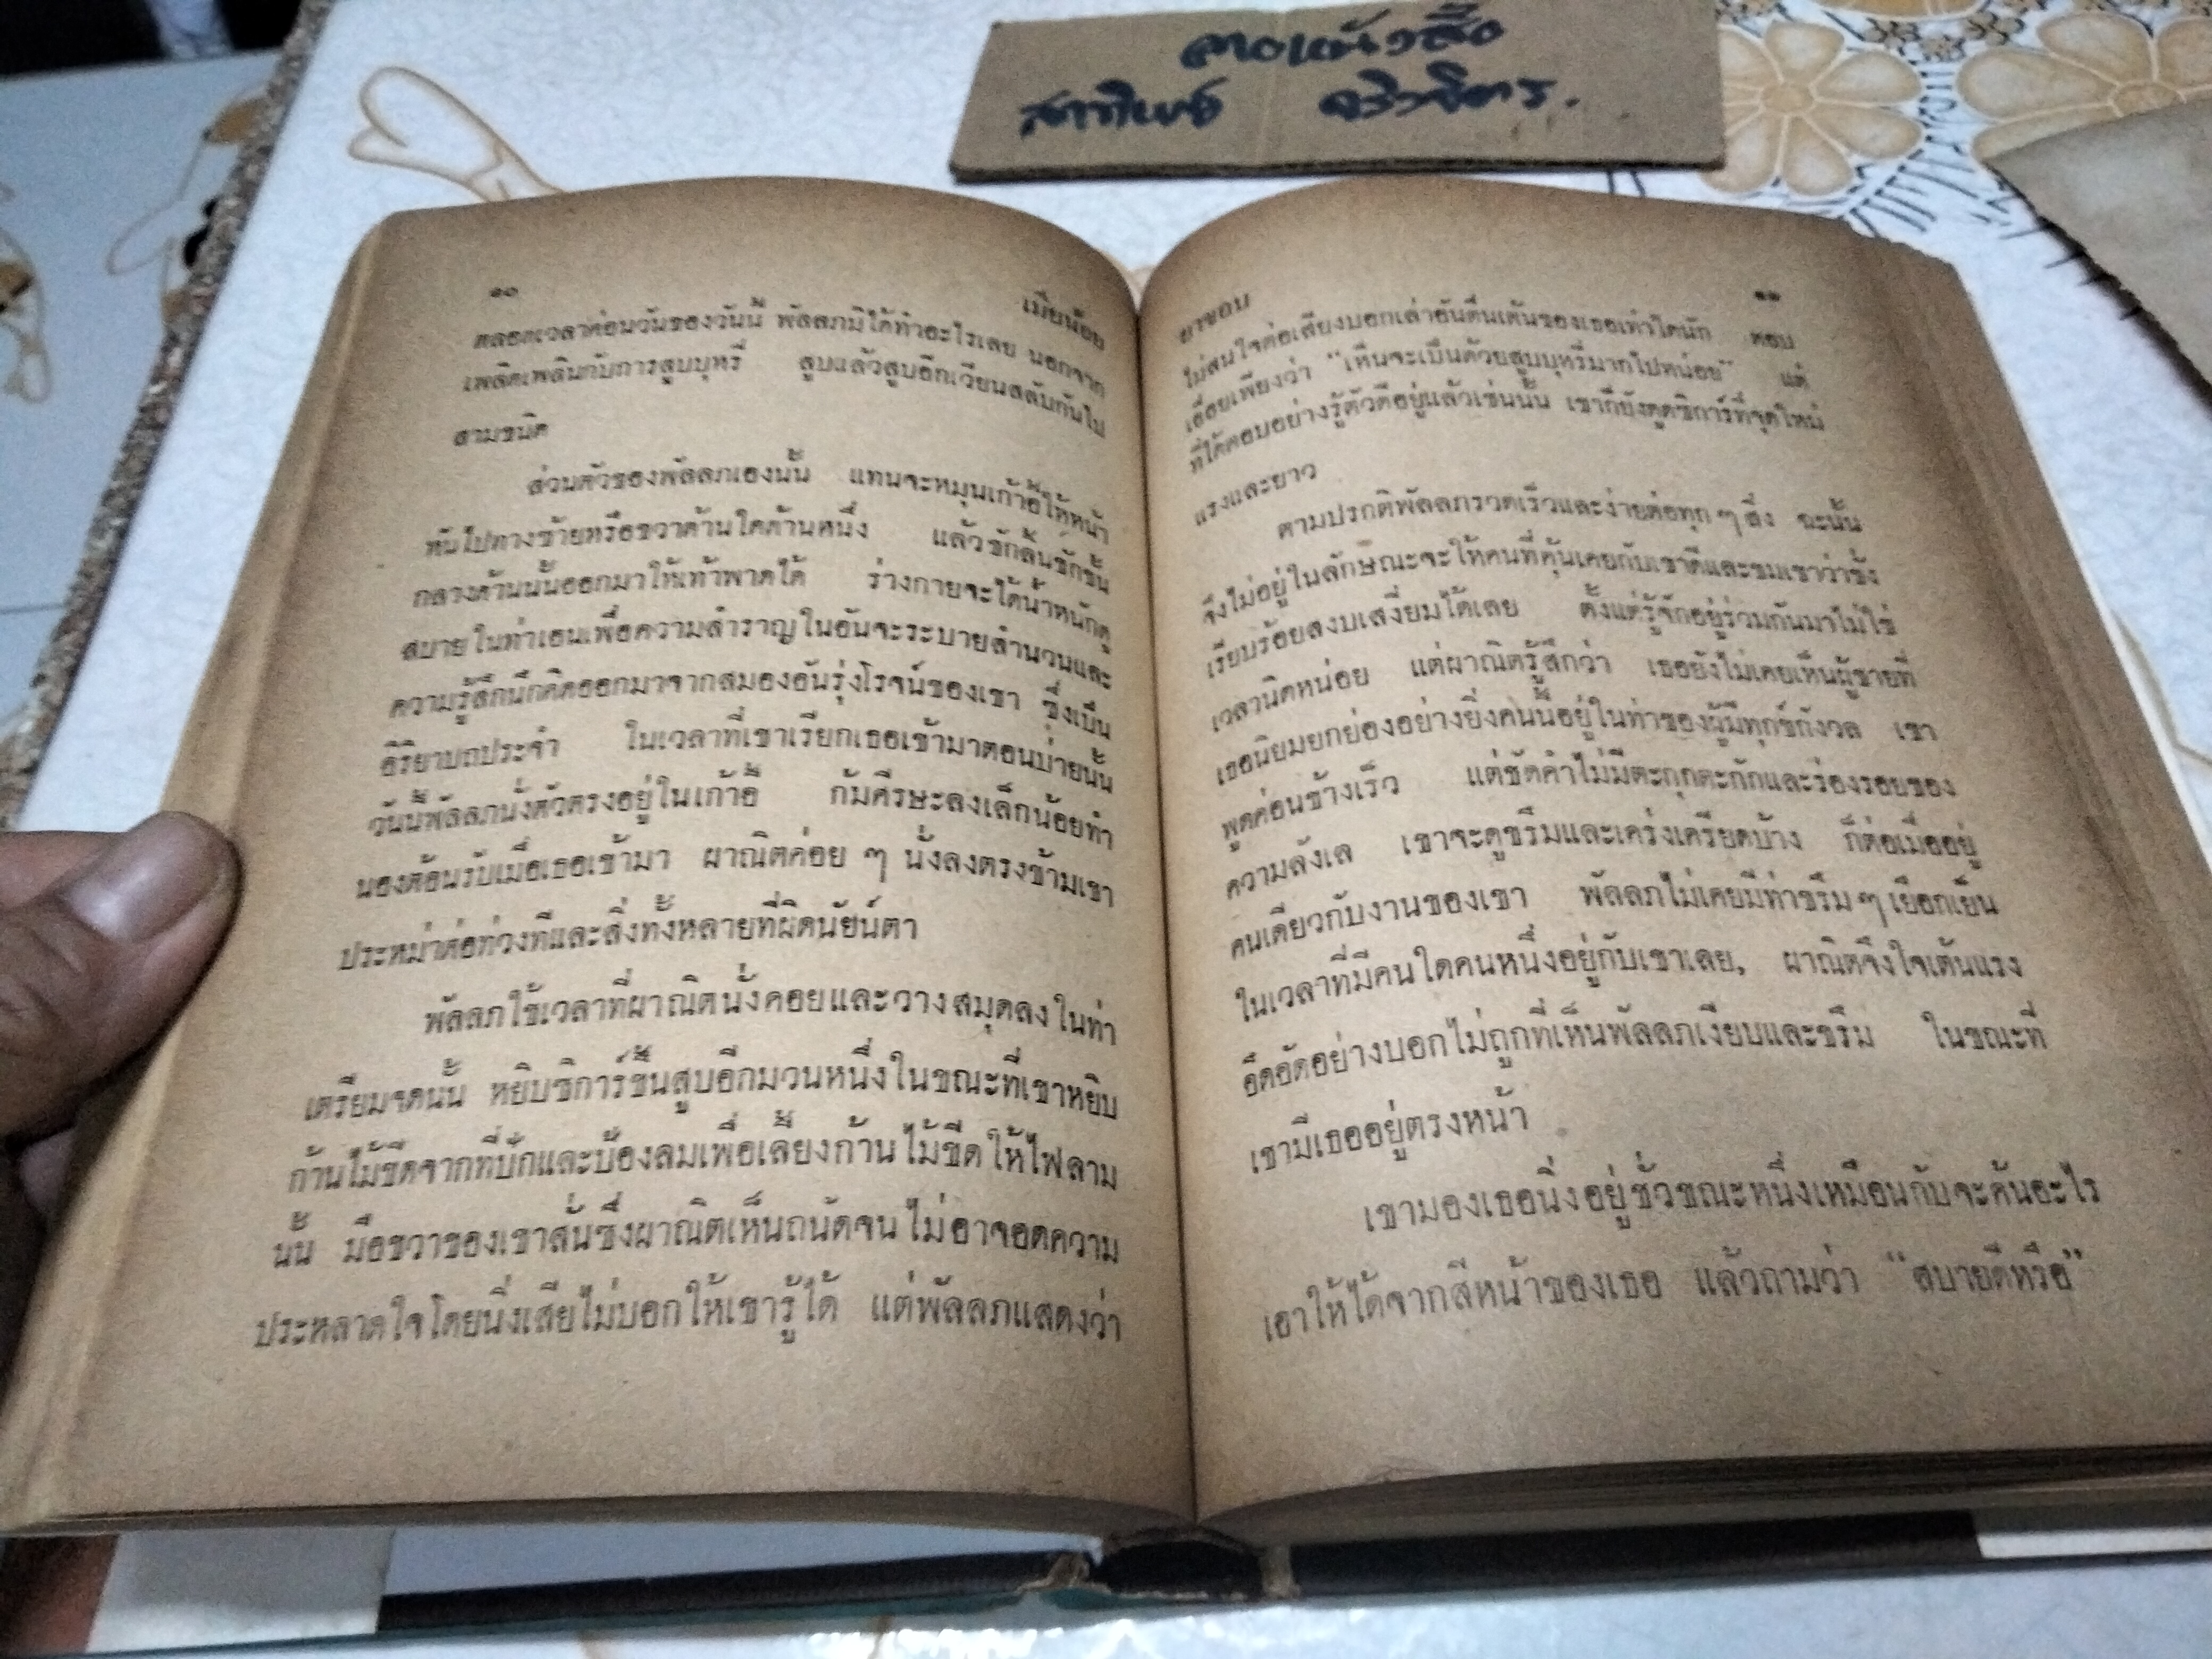 ลายหนังสือ
๑๐
เมียน้อย
ตลอดเวลาค่อนวันของวันนี้ พัลลภมิได้ทำอะไรเลย นอกจาก
เพลิดเพลินกับการสูบบุหรี่ สูบแล้วสูบอีกเวียนสลับกันไป
สามชนิด
ส่วนตัวของพัลลภเองนั้น แทนจะหมุนเก้าอี้ให้หน้า
หันไปทางซ้ายหรือขวาด้านใดด้านหนึ่ง แล้วชักลิ้นชักชั้น
กลางด้านนั้นออกมาให้เท้าพาดได้ ร่างกายจะได้น้ำหนักดู
สบายในท่าเอนเพื่อความสำราญในอันจะระบายสำนวนและ
ความรู้สึกนึกคิดออกมาจากสมองอันรุ่งโรจน์ของเขา ซึ่งเป็น
อิริยาบถประจำ ในเวลาที่เขาเรียกเธอเข้ามาตอนบ่ายนั้น
วันนี้พัลลภนั่งตัวตรงอยู่ในเก้าอี้ ก้มศีรษะลงเล็กน้อยทำ
นองต้อนรับเมื่อเธอเข้ามา ผาณิตค่อย ๆ นั่งลงตรงข้ามเขา
ประหม่าต่อท่วงทีและสิ่งทั้งหลายที่ผิดนัยน์ตา
พัลลภใช้เวลาที่ผาณิตนั่งคอยและวางสมุดลงในท่า
เตรียมจดนั้น หยิบซิการ์ขึ้นสูบอีกมวนหนึ่งในขณะที่เขาหยิบ
ก้านไม้ขีดจากที่ปักและป้องลมเพื่อเลี้ยงก้านไม้ขีดให้ไฟลาม
นั้น มือขวาของเขาสั่นซึ่งผาณิตเห็นถนัดจนไม่อาจอดความ
ประหลาดใจโดยนิ่งเสียไม่บอกให้เขารู้ได้ แต่พัลลภแสดงว่า
ยาขอบ
๑๑
ไม่สนใจต่อเสียงบอกเล่าอันตื่นเต้นของเธอเท่าใดนัก ตอบ
เอื่อยเพียงว่า "เห็นจะเป็นด้วยสูบบุหรี่มากไปหน่อย" แต่
ที่ได้ตอบอย่างรู้ตัวดีอยู่แล้วเช่นนั้น เขาก็ยังดูดซิการ์ที่จุดใหม่
แรงและยาว
ตามปรกติพัลลภรวดเร็วและง่ายต่อทุก ๆ สิ่ง ฉะนั้น
จึงไม่อยู่ในลักษณะจะให้คนที่คุ้นเคยกับเขาดีและชมเขาว่าช่าง
เรียบร้อยสงบเสงี่ยมได้เลย ตั้งแต่รู้จักอยู่ร่วมกันมาไม่ใช่
เวลานิดหน่อย แต่ผาณิตรู้สึกว่า เธอยังไม่เคยเห็นผู้ชายที่
เธอนิยมยกย่องอย่างยิ่งคนนี้อยู่ในท่าของผู้มีทุกข์กังวล เขา
พูดค่อนข้างเร็ว แต่ชัดคำไม่มีตะกุกตะกักและร่องรอยของ
ความลังเล เขาจะดูขรึมและเคร่งเครียดบ้าง ก็ต่อเมื่ออยู่
คนเดียวกับงานของเขา พัลลภไม่เคยมีท่าขรึม ๆ เยือกเย็น
ในเวลาที่มีคนใดคนหนึ่งอยู่กับเขาเลย, ผาณิตจึงใจเต้นแรง
อึดอัดอย่างบอกไม่ถูกที่เห็นพัลลภเงียบและขรึม ในขณะที่
เขามีเธออยู่ตรงหน้า
เขามองเธอนิ่งอยู่ชั่วขณะหนึ่งเหมือนกับจะค้นอะไร
เอาให้ได้จากสีหน้าของเธอ แล้วถามว่า "สบายดีหรือ"